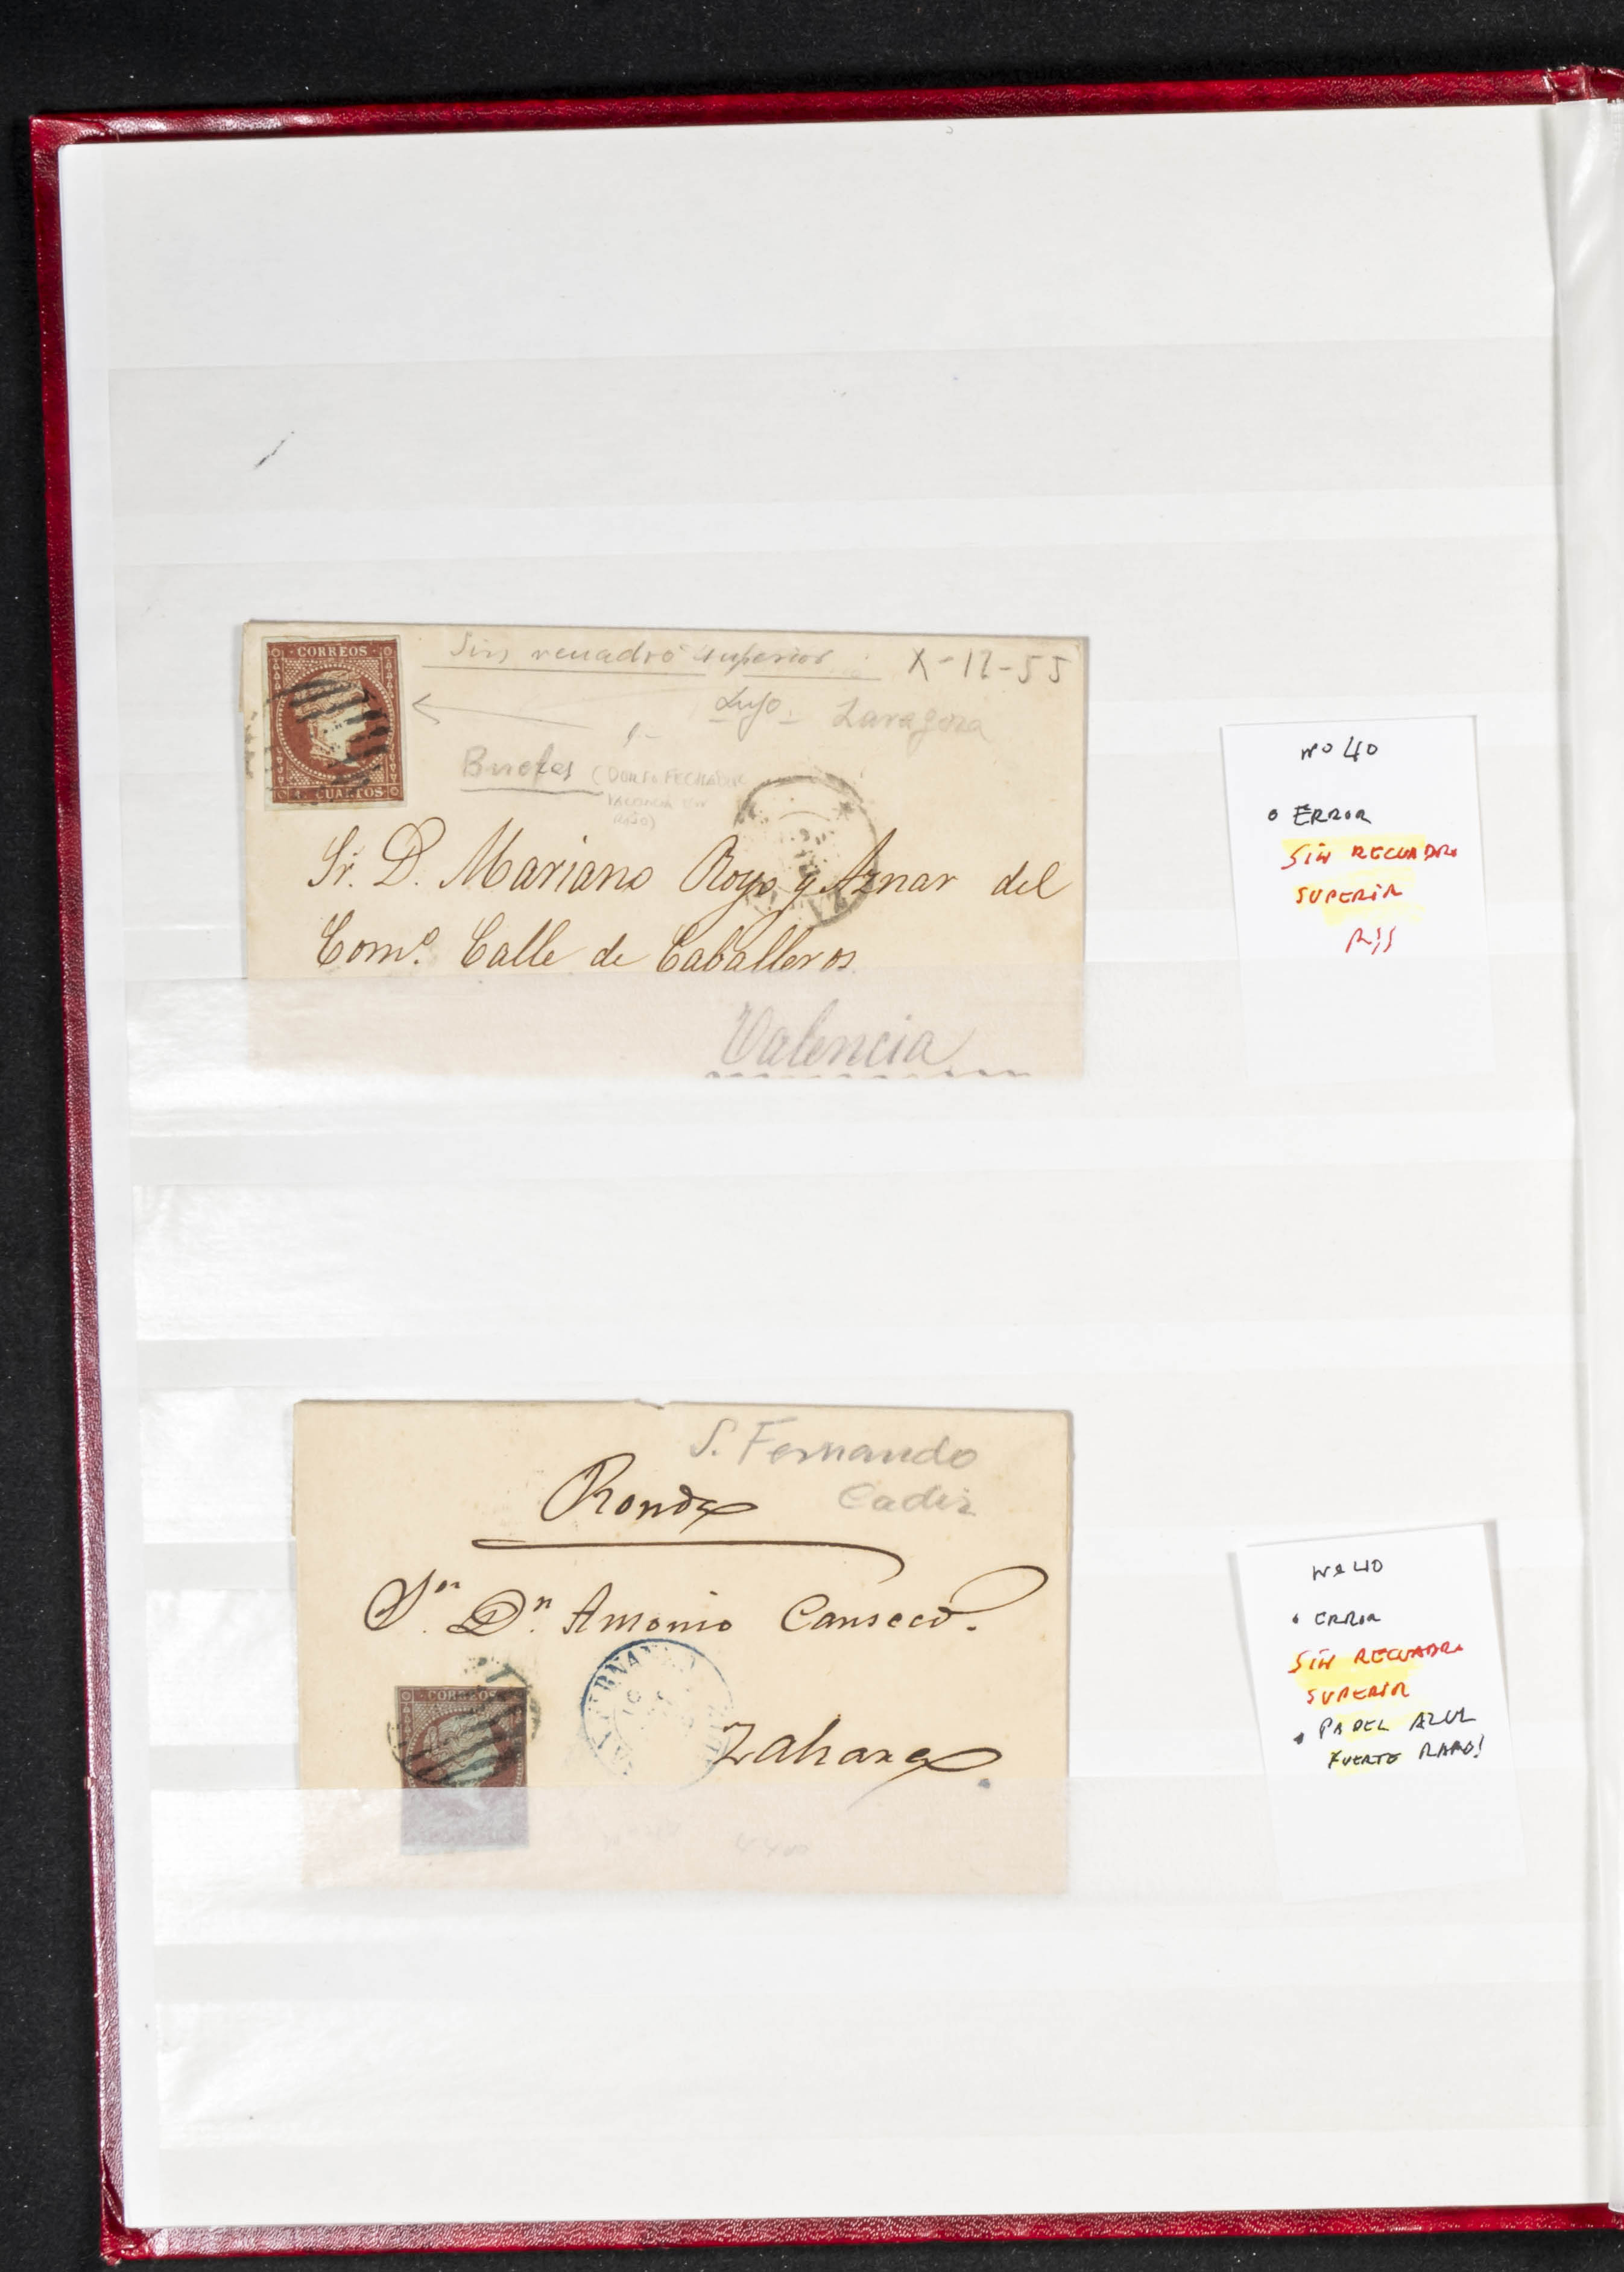 CORREOS
Sin recuadro superior X-12-55
Lujo - Zaragoza
Bueltas (
4 CUARTOS
Sr. D. Mariano Royo y Aznar del
Com.º Calle de Caballeros
Valencia
Nº 40
• ERROR
SIN RECUADRO
SUPERIR
S. Fernando
Cadiz
Ronda
Sor. Dn. Antonio Canseco.
CORREOS
Zahara
Nº 40
• ERROR
SIN RECUADRO
SUPERIR
• PAPEL AZUL
FUERTE RARO!